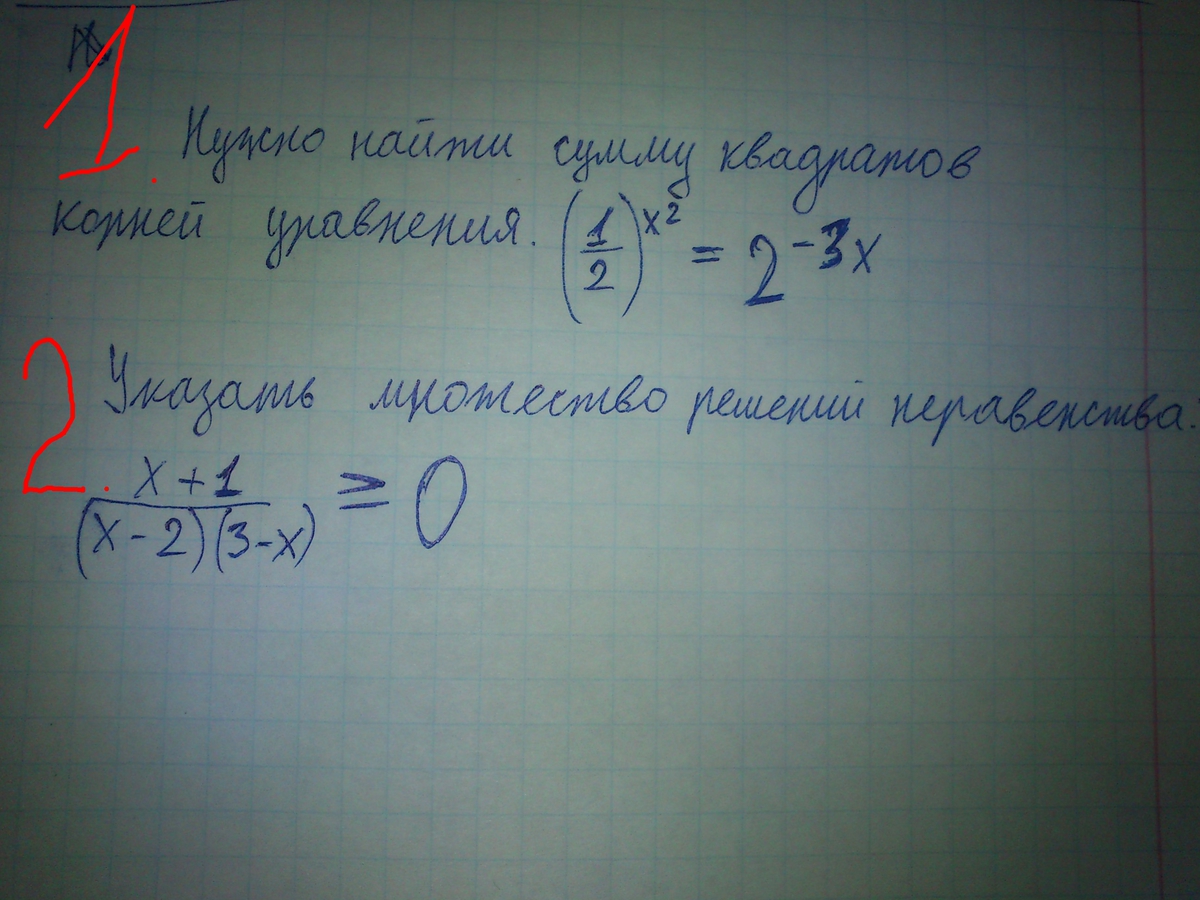 1. Нужно найти сумму квадратов
корней уравнения. (1/2)^x² = 2^-3x
2. Указать множество решений неравенства:
(x+1)/((x-2)(3-x)) ≥ 0